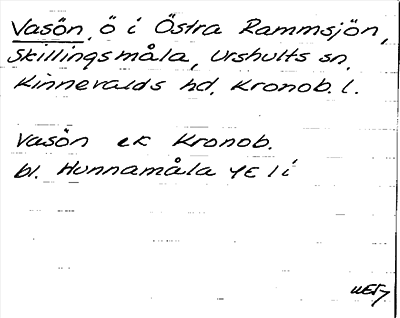 Vasön, ö i Östra Rammsjön,
Skillingsmåla, Urshults sn,
Kinnevalds hd, Kronob. l.
Vasön ek Kronob.
bl. Hunnamåla 4E 1 i